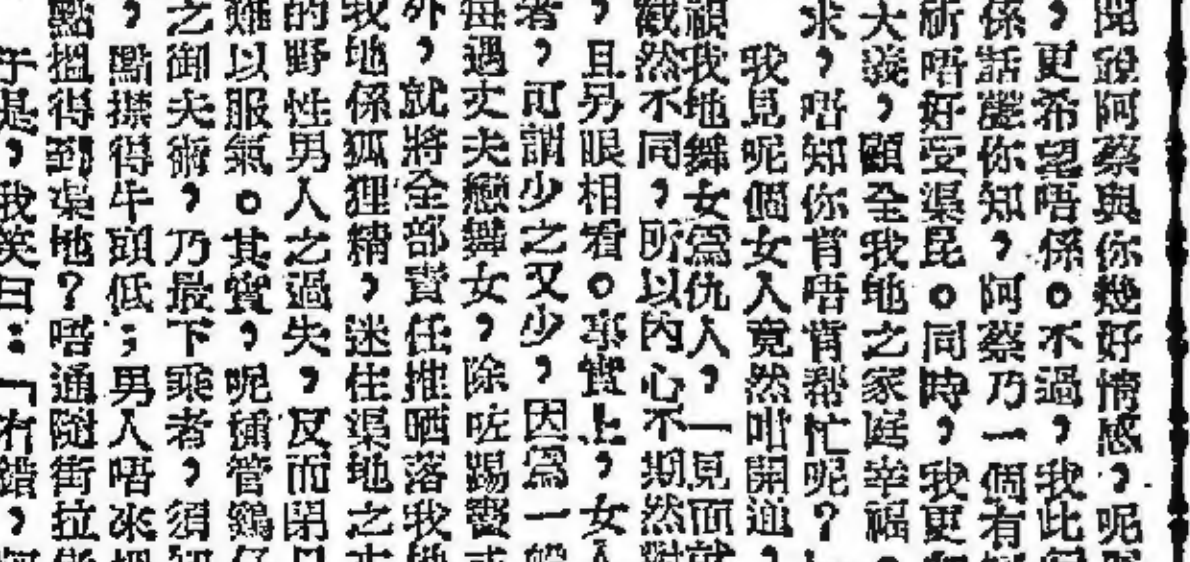 聞說阿蔡與你幾好情感，呢
，更希望唔係。不過，我此
係話聽你知，阿蔡乃一個有
唔好受渠昆。同時，我更
大義，顧全我地之家庭幸福。
求，唔知你肯唔肯帮忙呢？
我見呢個女人竟然咁開通，
視我地舞女為仇人，一見而就
截然不同，所以內心不期然對
，且另眼相看。事實上，女人
者，可謂少之又少，因為一般
每遇丈夫戀舞女，除咗踢竇
外，就將全部責任推晒落我
我地係狐狸精，迷住渠地之丈
的野性男人之過失，反而閉
難以服氣。其實，呢種管
之御夫術，乃最下乘者，須知
，點㩒得牛頭低；男人唔來
點搵得到渠地？唔通隨街拉
于是，我笑曰：「冇錯，